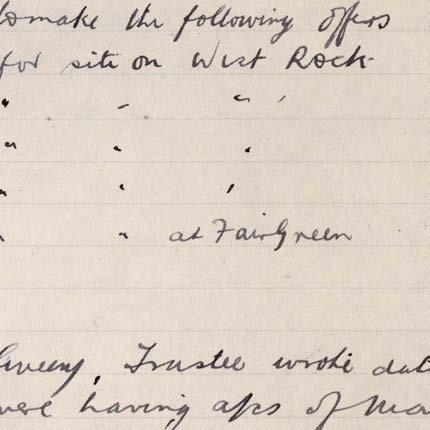 to make the following offers
for site on West Rock
" " " "
" " "
" " "
" " at Fair Green
Trustee wrote dat
were having aps of Ma